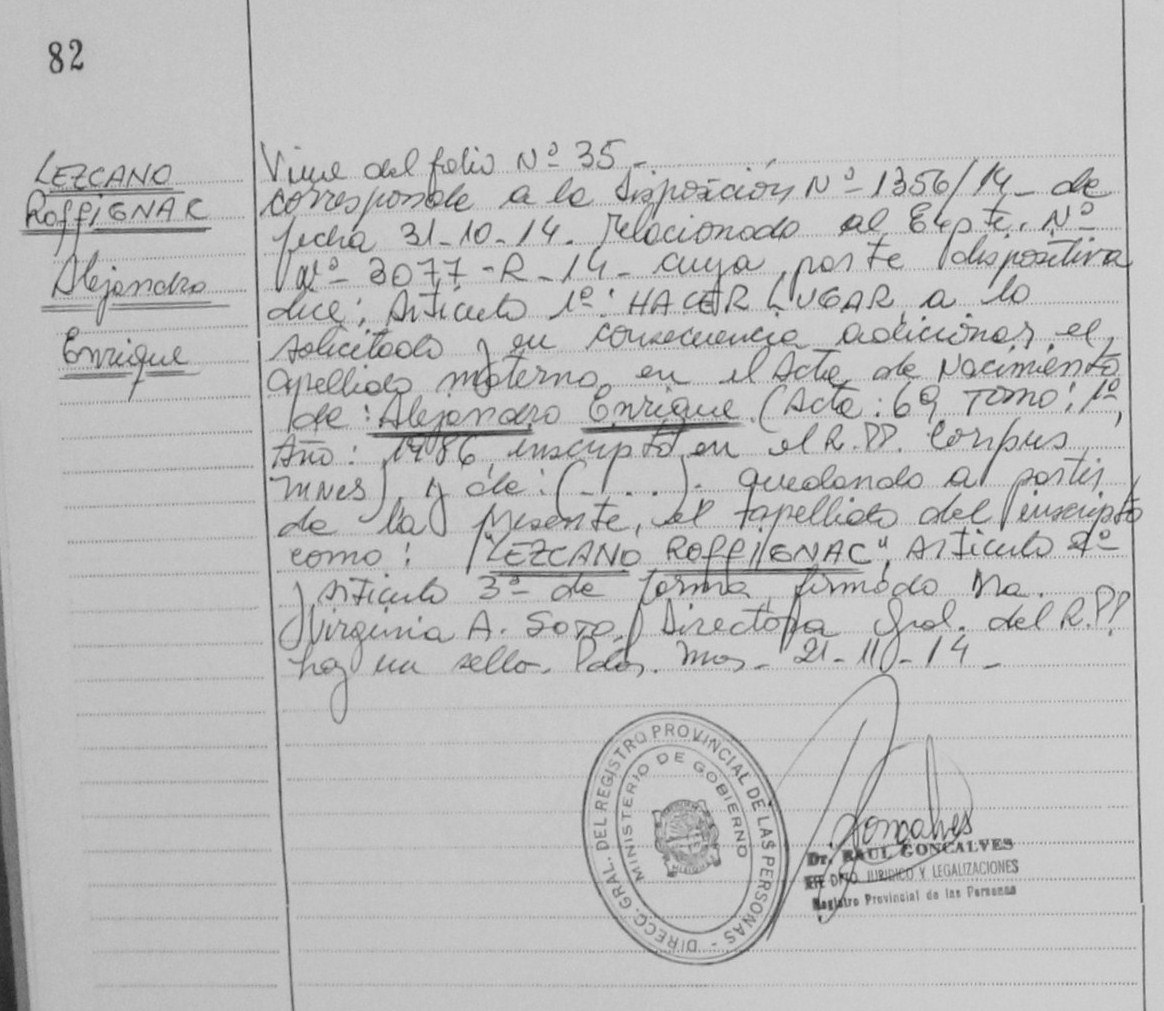 82
LEZCANO
ROFFIGNAC
Alejandro
Enrique
Viene del folio Nº 35-
corresponde a la Disposición Nº-1356/14- de
fecha 31-10-14. relacionado al Expte. Nº
Nº- 3077-R-14- cuya parte dispositiva
dice; Artículo 1º: HACER LUGAR a lo
solicitado y en consecuencia adicionar el
apellido materno, en el Acta de Nacimiento
de: Alejandro Enrique (Acta: 69, Tomo: 1º,
Año: 1986, inscripto en el R.PP. Corpus
MNES), y de: (-/...). quedando a partir
de la presente, el apellido del inscripto
como: "LEZCANO ROFFIGNAC", Artículo 2º
y Artículo 3º de forma, firmado Ma.
Virginia A. Soto, Directora Gral. del R.PP.
hay un sello. Pdas. Mnes- 21-11-14-
DIRECC. GRAL. DEL REGISTRO PROVINCIAL DE LAS PERSONAS -
MINISTERIO DE GOBIERNO
Goncalves
Dr. RAUL GONCALVES
JEFE DPTO. JURIDICO Y LEGALIZACIONES
Registro Provincial de las Personas